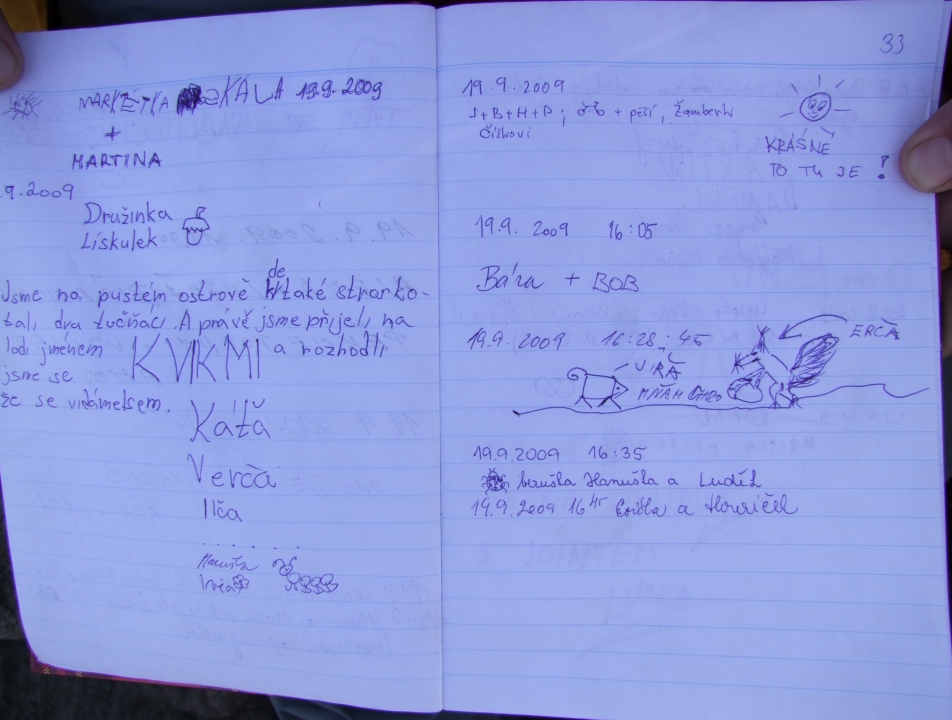 MARKÉTKA SKÁLA 19.9.2009
+
MARTINA
.9.2009
Družinka
Lískulek
de
Jsme na pustém ostrově také
tali, dva tučňáci. A právě jsme přijeli, na
lodi jménem KVKMI a rozhodli
jsme se
že se
Káťa
Verča
Ilča
. . . . . .
Hanuška
33
19.9.2009
J+B+H+P; + pěší, Žamberk
Čížkovi
KRÁSNĚ
TO TU JE !
19.9. 2009 16:05
Bára + BOB
19.9.2009 16:28:45
ERCA
VIRÁČ
MŇAM
19.9.2009 16:35
beruška Hanuška a Luděk
19.9.2009 16 45 a